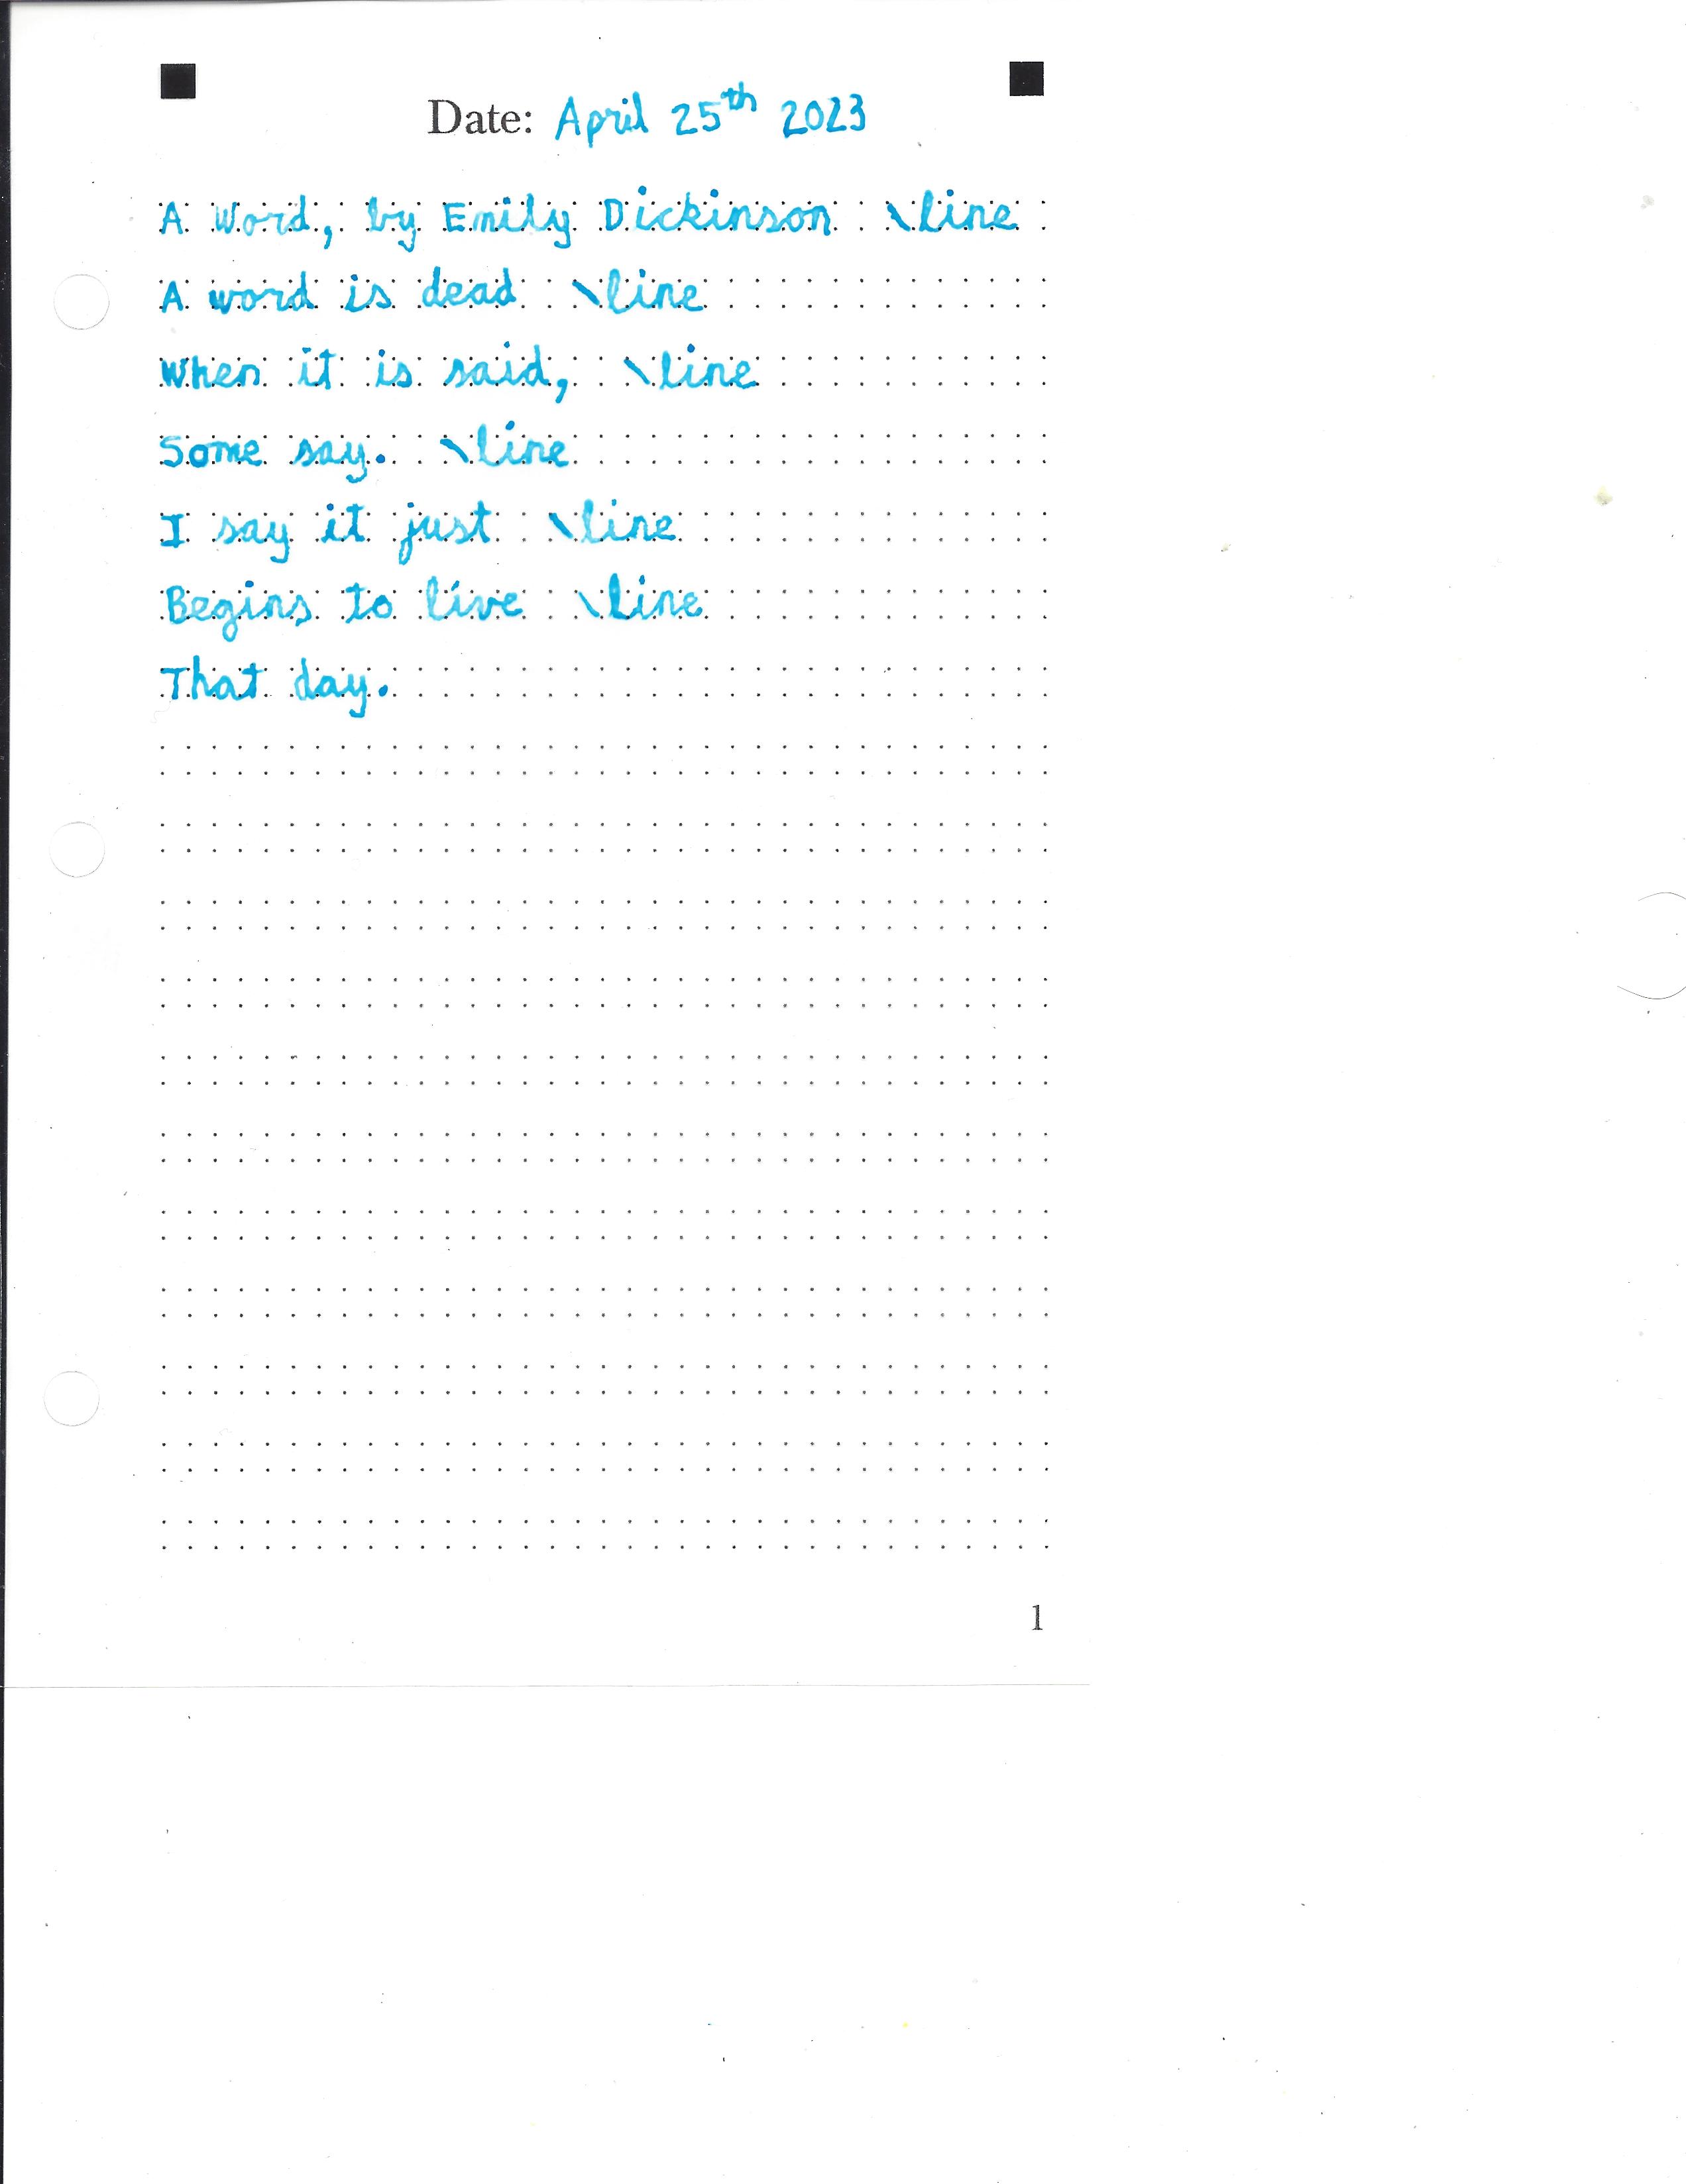 Date: April 25th 2023
A Word, by Emily Dickinson \line
A word is dead \line
When it is said, \line
Some say. \line
I say it just \line
Begins to live \line
That day.
1